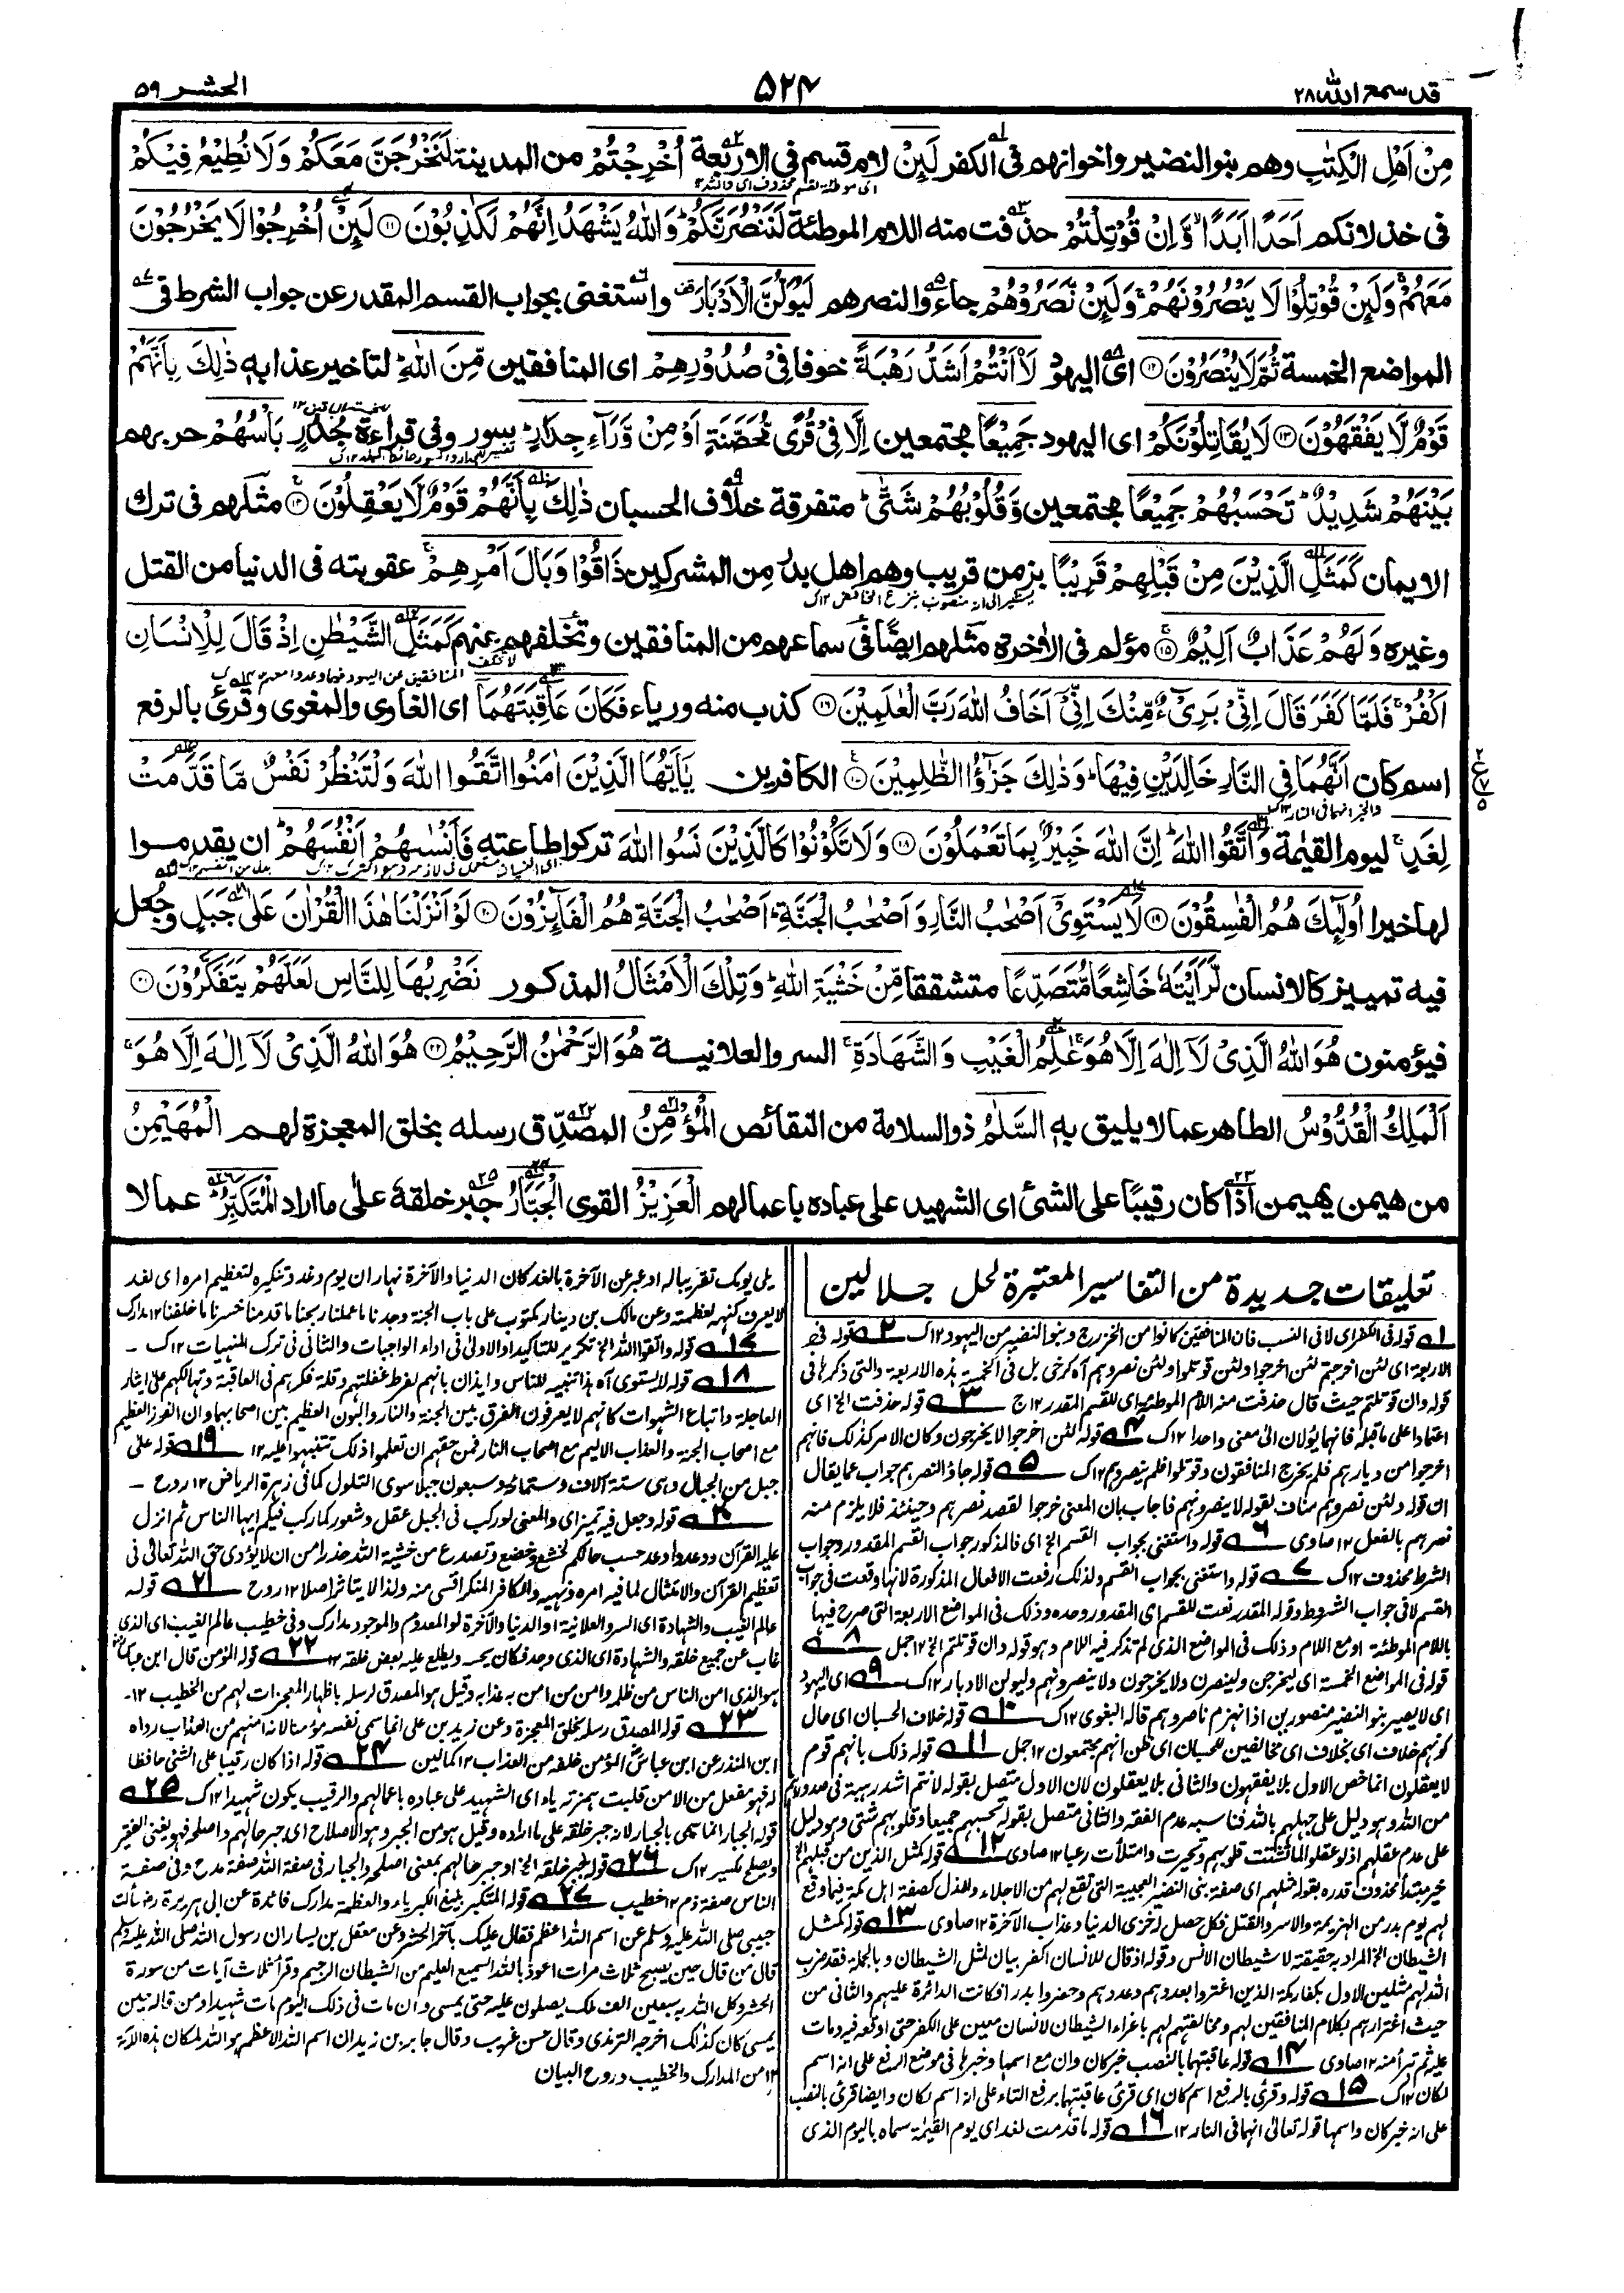 قد سمع الله ٢٨
٥٢٤
الحشر ٥٩
مِنْ اَهْلِ الْكِتٰبِ وهم بنو النضير واخوانهم فى الكفر لَئِنْ لام قسم فى الاربعة اُخْرِجْتُمْ من المدينة لَنَخْرُجَنَّ مَعَكُمْ وَلَا نُطِيْعُ فِيْكُمْ
فى خذلانكم اَحَدًا اَبَدًا وَّاِنْ قُوْتِلْتُمْ حذفت منه اللام الموطئة لَنَنْصُرَنَّكُمْ وَاللّٰهُ يَشْهَدُ اِنَّهُمْ لَكٰذِبُوْنَ ۝١١ لَئِنْ اُخْرِجُوْا لَا يَخْرُجُوْنَ
مَعَهُمْ وَلَئِنْ قُوْتِلُوْا لَا يَنْصُرُوْنَهُمْ وَلَئِنْ نَّصَرُوْهُمْ جاءوا لنصرهم لَيُوَلُّنَّ الْاَدْبَارَ واستغنى بجواب القسم المقدر عن جواب الشرط فى
المواضع الخمسة ثُمَّ لَا يُنْصَرُوْنَ ۝١٢ اى اليهود لَاَنْتُمْ اَشَدُّ رَهْبَةً خوفا فِىْ صُدُوْرِهِمْ اى المنافقين مِّنَ اللّٰهِ لتاخير عذابه ذٰلِكَ بِاَنَّهُمْ
قَوْمٌ لَّا يَفْقَهُوْنَ ۝١٣ لَا يُقَاتِلُوْنَكُمْ اى اليهود جَمِيْعًا مجتمعين اِلَّا فِىْ قُرًى مُّحَصَّنَةٍ اَوْ مِنْ وَّرَآءِ جِدَارٍ بسور وفى قراءة جُدُرٍ بَاْسُهُمْ حربهم
بَيْنَهُمْ شَدِيْدٌ تَحْسَبُهُمْ جَمِيْعًا مجتمعين وَّقُلُوْبُهُمْ شَتّٰى متفرقة خلاف الحسبان ذٰلِكَ بِاَنَّهُمْ قَوْمٌ لَّا يَعْقِلُوْنَ ۝١٤ مثلهم فى ترك
الايمان كَمَثَلِ الَّذِيْنَ مِنْ قَبْلِهِمْ قَرِيْبًا بزمن قريب وهم اهل بدر من المشركين ذَاقُوْا وَبَالَ اَمْرِهِمْ عقوبته فى الدنيا من القتل
وغيره وَلَهُمْ عَذَابٌ اَلِيْمٌ ۝١٥ مؤلم فى الاٰخرة مثلهم ايضًا فى سماعهم من المنافقين وتخلفهم عنهم كَمَثَلِ الشَّيْطٰنِ اِذْ قَالَ لِلْاِنْسَانِ
اكْفُرْ فَلَمَّا كَفَرَ قَالَ اِنِّىْ بَرِىْٓءٌ مِّنْكَ اِنِّىْٓ اَخَافُ اللّٰهَ رَبَّ الْعٰلَمِيْنَ ۝١٦ كذب منه ورياء فَكَانَ عَاقِبَتَهُمَآ اى الغاوى والمغوى وقرئ بالرفع
اسم كان اَنَّهُمَا فِى النَّارِ خَالِدَيْنِ فِيْهَا وَذٰلِكَ جَزٰٓؤُا الظّٰلِمِيْنَ ۝١٧ الكافرين يٰٓاَيُّهَا الَّذِيْنَ اٰمَنُوا اتَّقُوا اللّٰهَ وَلْتَنْظُرْ نَفْسٌ مَّا قَدَّمَتْ
لِغَدٍ ليوم القيٰمة وَاتَّقُوا اللّٰهَ اِنَّ اللّٰهَ خَبِيْرٌ بِمَا تَعْمَلُوْنَ ۝١٨ وَلَا تَكُوْنُوْا كَالَّذِيْنَ نَسُوا اللّٰهَ تركوا طاعته فَاَنْسٰهُمْ اَنْفُسَهُمْ ان يقدموا
لها خيرا اُولٰٓئِكَ هُمُ الْفٰسِقُوْنَ ۝١٩ لَا يَسْتَوِىْٓ اَصْحٰبُ النَّارِ وَاَصْحٰبُ الْجَنَّةِ اَصْحٰبُ الْجَنَّةِ هُمُ الْفَآئِزُوْنَ ۝٢٠ لَوْ اَنْزَلْنَا هٰذَا الْقُرْاٰنَ عَلٰى جَبَلٍ وجعل
فيه تمييز كالانسان لَّرَاَيْتَهٗ خَاشِعًا مُّتَصَدِّعًا متشققا مِّنْ خَشْيَةِ اللّٰهِ وَتِلْكَ الْاَمْثَالُ المذكور نَضْرِبُهَا لِلنَّاسِ لَعَلَّهُمْ يَتَفَكَّرُوْنَ ۝٢١
فيؤمنون هُوَ اللّٰهُ الَّذِىْ لَآ اِلٰهَ اِلَّا هُوَ عٰلِمُ الْغَيْبِ وَالشَّهَادَةِ السر والعلانية هُوَ الرَّحْمٰنُ الرَّحِيْمُ ۝٢٢ هُوَ اللّٰهُ الَّذِىْ لَآ اِلٰهَ اِلَّا هُوَ
اَلْمَلِكُ الْقُدُّوْسُ الطاهر عما لا يليق به السَّلٰمُ ذو السلامة من النقائص الْمُؤْمِنُ المصدّق رسله بخلق المعجزة لهم الْمُهَيْمِنُ
من هيمن يهيمن اذا كان رقيبًا على الشئ اى الشهيد على عباده باعمالهم الْعَزِيْزُ القوى الْجَبَّارُ جبر خلقه على ما اراد الْمُتَكَبِّرُ عما لا
تعليقات جديدة من التفاسير المعتبرة لحل جلالين
١ قوله فى الكفر اى لا فى النسب فان المنافقين كانوا من الخزرج وبنو النضير من اليهود ١٢ك ٢ قوله فى
الاربعة اى لئن اخرجتم لئن اخرجوا ولئن قوتلوا ولئن نصروهم آه كرخى بل فى الخمسة هذه الاربعة والتى ذكرها فى
قوله وان قوتلتم حيث قال حذفت منه اللام الموطئة اى للقسم المقدر ١٢ج ٣ قوله حذفت الخ اى
اعتمادا على ما قبله فانهما يؤلان الى معنى واحد ١٢ك ٤ قوله لئن اخرجوا لا يخرجون وكان الامر كذلك فانهم
اخرجوا من ديارهم فلم يخرج المنافقون وقوتلوا فلم ينصروهم ١٢ك ٥ قوله جاؤا لنصرهم جواب عما يقال
ان قوله ولئن نصروهم مناف لقوله لا ينصرونهم فاجاب بان المعنى خرجوا لقصد نصرهم وحينئذ فلا يلزم منه
نصرهم بالفعل ١٢ صاوى ٦ قوله واستغنى بجواب القسم الخ اى فالمذكور جواب القسم المقدور وجواب
الشرط محذوف ١٢ك ٧ قوله واستغنى بجواب القسم ولذلك رفعت الافعال المذكورة لانها وقعت فى جواب
القسم لا فى جواب الشروط وقوله المقدر نعت للقسم اى المقدور وحده وذلك فى المواضع الاربعة التى صرح فيها
باللام الموطئة او مع اللام وذلك فى المواضع الذى لم تذكر فيه اللام وهو قوله وان قوتلتم الخ ١٢ جمل ٨
قوله فى المواضع الخمسة اى ليخرجن ولينصرن ولا يخرجون ولا ينصرونهم وليولن الادبار ١٢ك ٩ اى اليهود
اى لا يصير بنو النضير منصورين اذا انهزم ناصروهم قاله البغوى ١٢ك ١٠ قوله خلاف الحسبان اى حال
كونهم خلاف اى بخلاف اى مخالفين للحسبان اى ظن انهم مجتمعون ١٢ جمل ١١ قوله ذلك بانهم قوم
لا يعقلون انما خص الاول بلا يفقهون والثانى بلا يعقلون لان الاول متصل بقوله لانتم اشد رهبة فى صدورهم
من الله وهو دليل على جهلهم بالله فناسبه عدم الفقه والثانى متصل بقوله تحسبهم جميعا وقلوبهم شتى وهو دليل
على عدم عقلهم اذ لو عقلوا لما تشتت قلوبهم وتحيرت وامتلأت رعبا ١٢ صاوى ١٢ قوله كمثل الذين من قبلهم الخ
خبر مبتدأ محذوف قدره بقوله مثلهم اى صفة بنى النضير العجيبة التى تقع لهم من الاجلاء والذل كصفة اهل مكة فيما وقع
لهم يوم بدر من الهزيمة والاسر والقتل فكل حصل له خزى الدنيا وعذاب الآخرة ١٢ صاوى ١٣ قوله كمثل
الشيطان الخ المراد به حقيقته لا شيطان الانس وقوله اذ قال للانسان اكفر بيان لمثل الشيطان وبالجملة فقد ضرب
الله لهم مثلين الاول بكفار مكة الذين اغتروا بعددهم وعددهم وحضروا بدرا فكانت الدائرة عليهم والثانى من
حيث اغترارهم بكلام المنافقين لهم ومخالفتهم لهم باغراء الشيطان لانسان معين على الكفر حتى اوقعه فيه ومات
عليه ثم تبرأ منه ١٢ صاوى ١٤ قوله عاقبتهما بالنصب خبر كان وان مع اسمها وخبرها فى موضع الرفع على انه اسم
لكان ١٢ك ١٥ قوله وقرئ بالرفع اسم كان اى قرئ عاقبتهما برفع التاء على انه اسم لكان وايضا قرئ بالنصب
على انه خبر كان واسمها قوله تعالى انهما فى النار ١٢ ١٦ قوله ما قدمت لغد اى يوم القيٰمة سماه باليوم الذى
يلى يومك تقريبا له او عبر عن الآخرة بالغد كان الدنيا والآخرة نهاران يوم وغد وتنكيره لتعظيم امره اى لغد
لا يعرف كنهه لعظمته وعن مالك بن دينار مكتوب على باب الجنة وجدنا ما عملنا ربحنا ما قدمنا خسرنا ما خلفنا ١٢ مدارك
١٧ قوله واتقوا الله الخ تكرير للتاكيد او الاولى فى اداء الواجبات والثانى فى ترك المنهيات ١٢ك
١٨ قوله لا يستوى آه هذا تنبيه للناس وايذان بانهم لفرط غفلتهم وقلة فكرهم فى العاقبة وتهالكهم على ايثار
العاجلة واتباع الشهوات كانهم لا يعرفون الفرق بين الجنة والنار والبون العظيم بين اصحابهما وان الفوز العظيم
مع اصحاب الجنة والعذاب الاليم مع اصحاب النار فمن حقهم ان تعلموا ذلك تنبيها عليه ١٢ ١٩ قوله على
جبل من الجبال وهى ستة آلاف وستمائة وسبعون جبلا سوى التلول كما فى زهرة الرياض ١٢ روح
٢٠ قوله وجعل فيه تمييز اى والمعنى لو ركب فى الجبل عقل وشعور كما ركب فيكم ايها الناس ثم انزل
عليه القرآن ووعد واوعد حسب حالكم لخشع وخضع وتصدع من خشية الله حذرا من ان لا يؤدى حق الله تعالى فى
تعظيم القرآن والامتثال لما فيه امره ونهيه والكافر المنكر اقسى منه ولذا لا يتاثر اصلا ١٢ روح ٢١ قوله
عالم الغيب والشهادة اى السر والعلانية او الدنيا والآخرة او المعدوم والموجود مدارك وفى خطيب عالم الغيب اى الذى
غاب عن جميع خلقه والشهادة اى الذى وجد فكان يحس ويطلع عليه بعض خلقه ١٢ ٢٢ قوله المؤمن قال ابن عباس
هو الذى امن الناس من ظلمه وامن من امن به عذابه وقيل هو المصدق لرسله باظهار المعجزات لهم من الخطيب ١٢
٢٣ قوله المصدق رسله بخلق المعجزة وعن زيد بن على انما سمى نفسه مؤمنا لانه امنهم من العذاب رواه
ابن المنذر عن ابن عباس المؤمن خلقه من العذاب ١٢ كمالين ٢٤ قوله اذا كان رقيبا على الشئ حافظا
له فهو مفعل من الامن قلبت همزته ياء اى الشهيد على عباده باعمالهم والرقيب يكون شهيدا ١٢ك ٢٥
قوله الجبار انما سمى بالجبار لانه جبر خلقه على ما اراده وقيل هو من الجبر وهو الاصلاح اى جبر حالهم واصلحه فهو يغنى الفقير
ويصلح الكسير ١٢ك ٢٦ قوله جبر خلقه الخ او جبر حالهم بمعنى اصلحه والجبار فى صفة الله صفة مدح وفى صفة
الناس صفة ذم ١٢ خطيب ٢٧ قوله المتكبر بليغ الكبرياء والعظمة مدارك فائدة عن ابى هريرة رض سألت
حبيبى صلى الله عليه وسلم عن اسم الله اعظم فقال عليك بآخر الحشر وعن معقل بن يسار ان رسول الله صلى الله عليه وسلم
قال من قال حين يصبح ثلاث مرات اعوذ بالله السميع العليم من الشيطان الرجيم وقرأ ثلاث آيات من سورة
الحشر وكل الله به سبعين الف ملك يصلون عليه حتى يمسى وان مات فى ذلك اليوم مات شهيدا ومن قاله حين
يمسى كان كذلك اخرجه الترمذى وقال حسن غريب وقال جابر بن زيد ان اسم الله الاعظم هو الله لمكان هذه الآية
١٢ من المدارك والخطيب وروح البيان